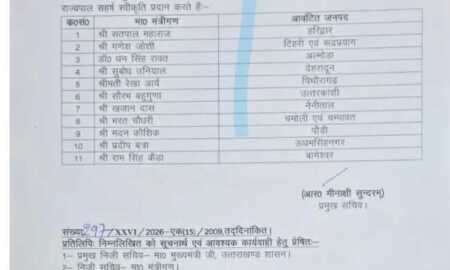 राज्यपाल सहर्ष स्वीकृति प्रदान करते हैः–
क०सं० मा० मंत्रीगण आवंटित जनपद
1 श्री सतपाल महाराज हरिद्वार
2 श्री गणेश जोशी टिहरी एवं रूद्रप्रयाग
3 डॉ० धन सिंह रावत अल्मोडा
4 श्री सुबोध उनियाल देहरादून
5 श्रीमती रेखा आर्य पिथौरागढ
6 श्री सौरभ बहुगुणा उत्तरकाशी
7 श्री खजान दास नैनीताल
8 श्री भरत चौधरी चमोली एवं चम्पावत
9 श्री मदन कौशिक पौडी
10 श्री प्रदीप बत्रा ऊधमसिंहनगर
11 श्री राम सिंह कैडा बागेश्वर
(आर० मीनाक्षी सुन्दरम)
प्रमुख सचिव।
संख्याः 297/XXVI/2026-एक(15)/2009,तद्दिनांकित।
प्रतिलिपिः निम्नलिखित को सूचनार्थ एवं आवश्यक कार्यवाही हेतु प्रेषितः–
1– प्रमुख निजी सचिव– मा० मुख्यमंत्री जी, उत्तराखण्ड शासन।
2– निजी सचिव– मा० मंत्रीगण।